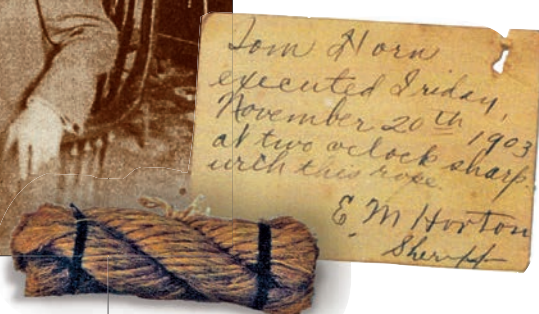 Tom Horn
executed Friday,
November 20th 1903
at two oclock sharp.
with this rope
E M Horton
Sheriff